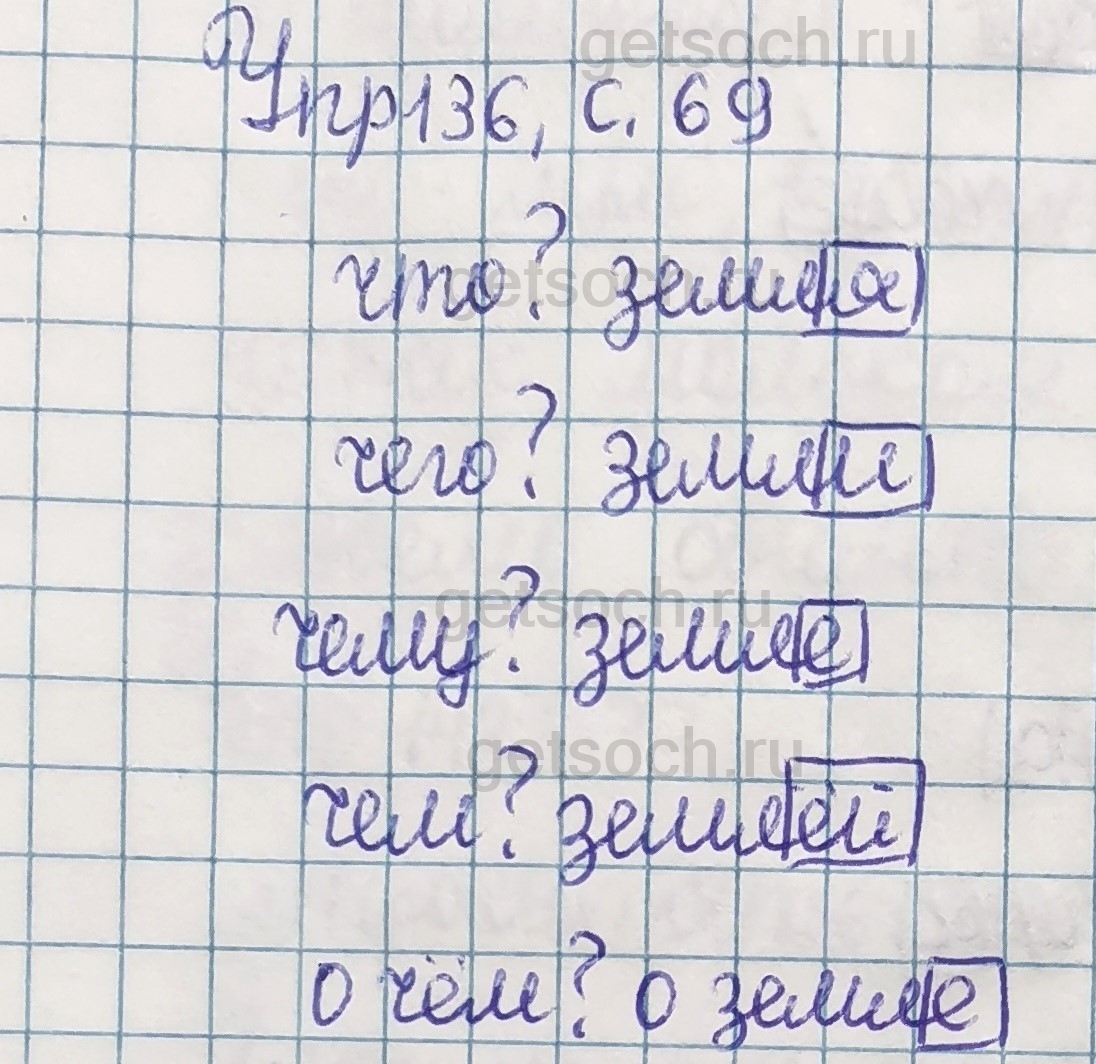 getsoch.ru
Упр 136, с. 69
что? земля
getsoch.ru
чего? земли
чему? земле
getsoch.ru
getsoch.ru
чем? землёй
о чём? о земле